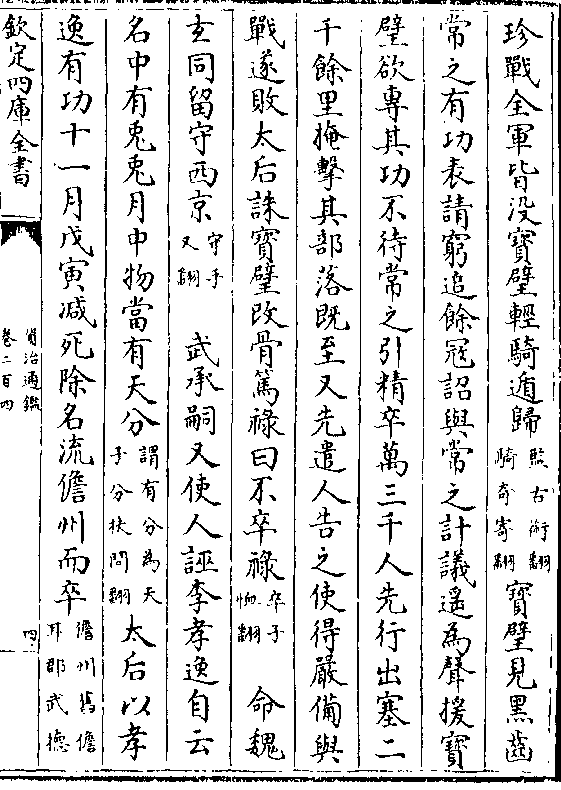 珍戰全軍皆没寶璧輕騎遁歸監古衘翻騎奇寄翻寶璧見黑齒
常之有功表請窮追餘冦詔與常之計議遥為聲援寳
璧欲專其功不待常之引精卒萬三千人先行出塞二
千餘里掩擊其部落既至又先遣人告之使得嚴備與
戰遂敗太后誅寳璧改骨篤禄曰不卒禄卒子恤翻命魏
玄同留守西京守手又翻武承嗣又使人誣李孝逸自云
名中有兎兎月中物當有天分謂有分為天子分扶問翻太后以孝
逸有功十一月戊寅减死除名流儋州而卒儋州舊儋耳郡武德
欽定四庫全書
資治通鑑
卷二百四
四